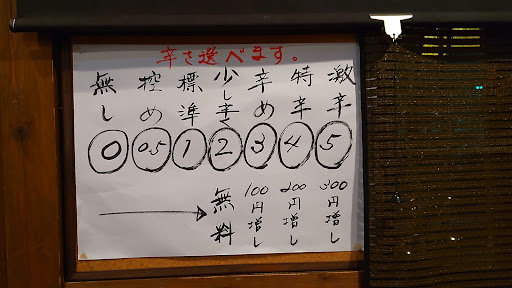 辛さ選べます。
無し
控め
標準
少し辛
辛め
特辛
激辛
0 0.5 1 2 3 4 5
無料
100円増し
200円増し
300円増し